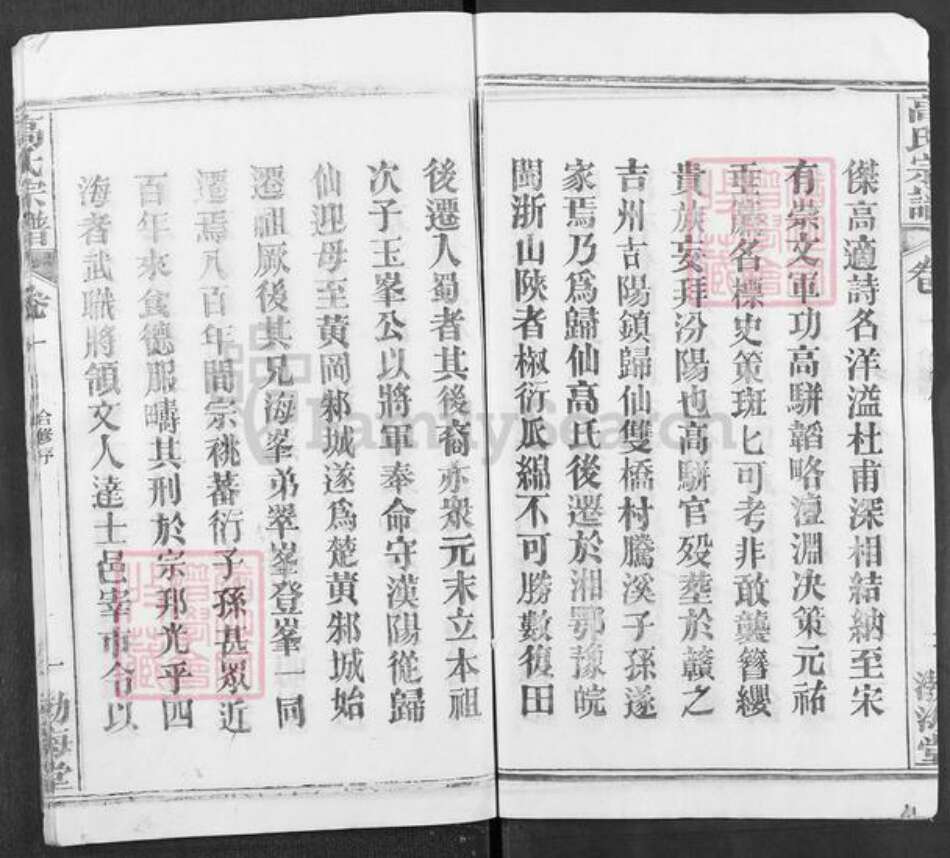 高氏宗譜
卷
渤海堂
傑高適詩名洋溢杜甫深相結納至宋
有崇文軍功高駢韜略澶淵决策元祐
垂簾名標史策班匕可考非敢襲簪纓
貴族妄拜汾陽也高駢官殁塟於贛之
吉州吉陽鎮歸仙雙橋村騰溪子孫遂
家焉乃爲歸仙高氏後遷於湘鄂豫皖
閩浙山陝者椒衍派綿不可勝數復由
後遷入蜀者其後裔亦衆元末立本祖
次子玉峯公以將軍奉命守漢陽從歸
仙迎母至黄岡邾城遂爲楚黄邾城始
遷祖厥後其兄海峯弟翠峯登峯一同
遷焉八百年間宗祧蕃衍子孫甚眾近
百年來食德服疇其刑於宗邦光乎四
海者武職將領文人達士邑宰市令以
高氏宗譜
卷一
合修序
一
渤海堂
FamilySearch